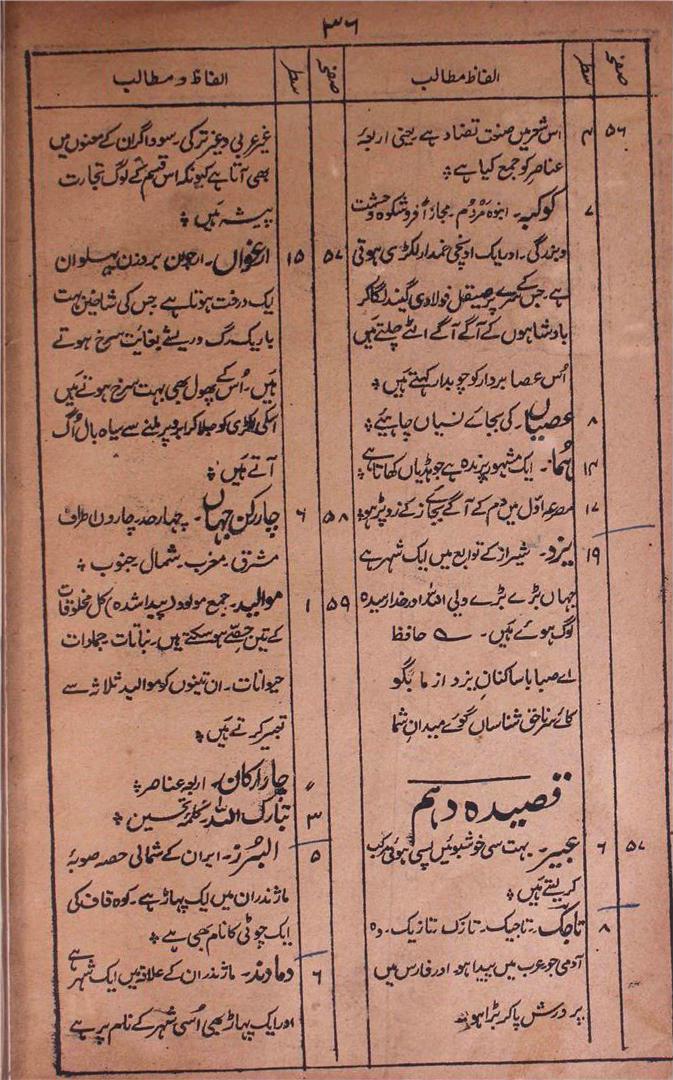 ۳۶
صفحہ سطر الفاظ مطالب
۵۶ ۴ اس شعر میں صنعت تضاد ہے یعنی اربعہ
عناصر کو جمع کیا ہے ؞
۷ کوکبہ۔ انبوہ مردُم۔ مجازاً فروشکوہ وحشمت
وبزرگی۔ اور ایک اونچی خمدار لکڑی ہوتی
ہے۔ جس کے سر پر صیقل فولادی گیند لگا کر
بادشاہوں کے آگے آگے لئے چلتے ہیں
اُس عصا بردار کو چوبدار کہتے ہیں ؞
۸ عصیاں۔ کی بجائے نسیاں چاہیئے ؞
۱۴ ہُما۔ ایک مشہور پرندہ ہے جو ہڈیاں کھاتا ہے ؞
۱۷ مصرعہ اوّل میں دم کے آگے بجائے ز کے رو پڑہو ؞
۱۹ یزد۔ شیراز کے توابع میں ایک شہر ہے
جہاں بڑے بڑے ولی اللہ اور خدا رسیدہ
لوگ ہوئے ہیں۔ ؎ حافظ
اے صبا با ساکنانِ یزد از ما بگو
کائے سرِ ناحق شناساں گوئے میدانِ شما
قصیدہ دہم
۵۷ ۶ عبیر۔ بہت سی خوشبوئیں پسی ہوئی مرکب
کر لیتے ہیں ؞
۸ تاجک۔ تاجیک۔ تازک۔ تازیک۔ وہ
آدمی جو عرب میں پیدا ہو۔ اور فارس میں
پرورش پا کر بڑا ہو ؞
صفحہ سطر الفاظ و مطالب
غیر عربی و غیر ترکی۔ سوداگران کے معنوں میں
بھی آتا ہے کیونکہ اس قسم کے لوگ تجارت
پیشہ ہیں ؞
۵۷ ۱۵ ارغواں۔ ارجون بروزن پہلوان
یک درخت ہوتا ہے جس کی شاخیں بہت
باریک رگ و ریشے بغایت سرخ ہوتے
ہیں۔ اُس کے پھول بھی بہت سرخ ہوتے ہیں
اسکی لکڑی کو جلا کر ابرو پر ملنے سے سیاہ بال اُگ
آتے ہیں ؞
۵۸ ۶ چار رکن جہاں۔ چہار حد۔ چاروں اطراف
مشرق۔ مغرب۔ شمال۔ جنوب ؞
۵۹ ۱ موالید۔ جمع مولود (پیدا شدہ) کل مخلوقات
کے تین حصّے ہو سکتے ہیں۔ نباتات۔ جمادات
حیوانات۔ ان تینوں کو موالید ثلاثہ سے
تعبیر کرتے ہیں ؞
〃 چار ارکان۔ اربعہ عناصر ؞
۳ تبارک اللہ۔ کلمۂ تحسین ؞
۵ البُرز۔ ایران کے شمالی حصہ صوبۂ
ماژندران میں ایک پہاڑ ہے۔ کوہ قاف کی
ایک چوٹی کا نام بھی ہے ؞
۶ دماوند۔ ماژندران کے علاقہ میں ایک شہر ہے
اور ایک پہاڑ بھی اُسی شہر کے نام پر ہے